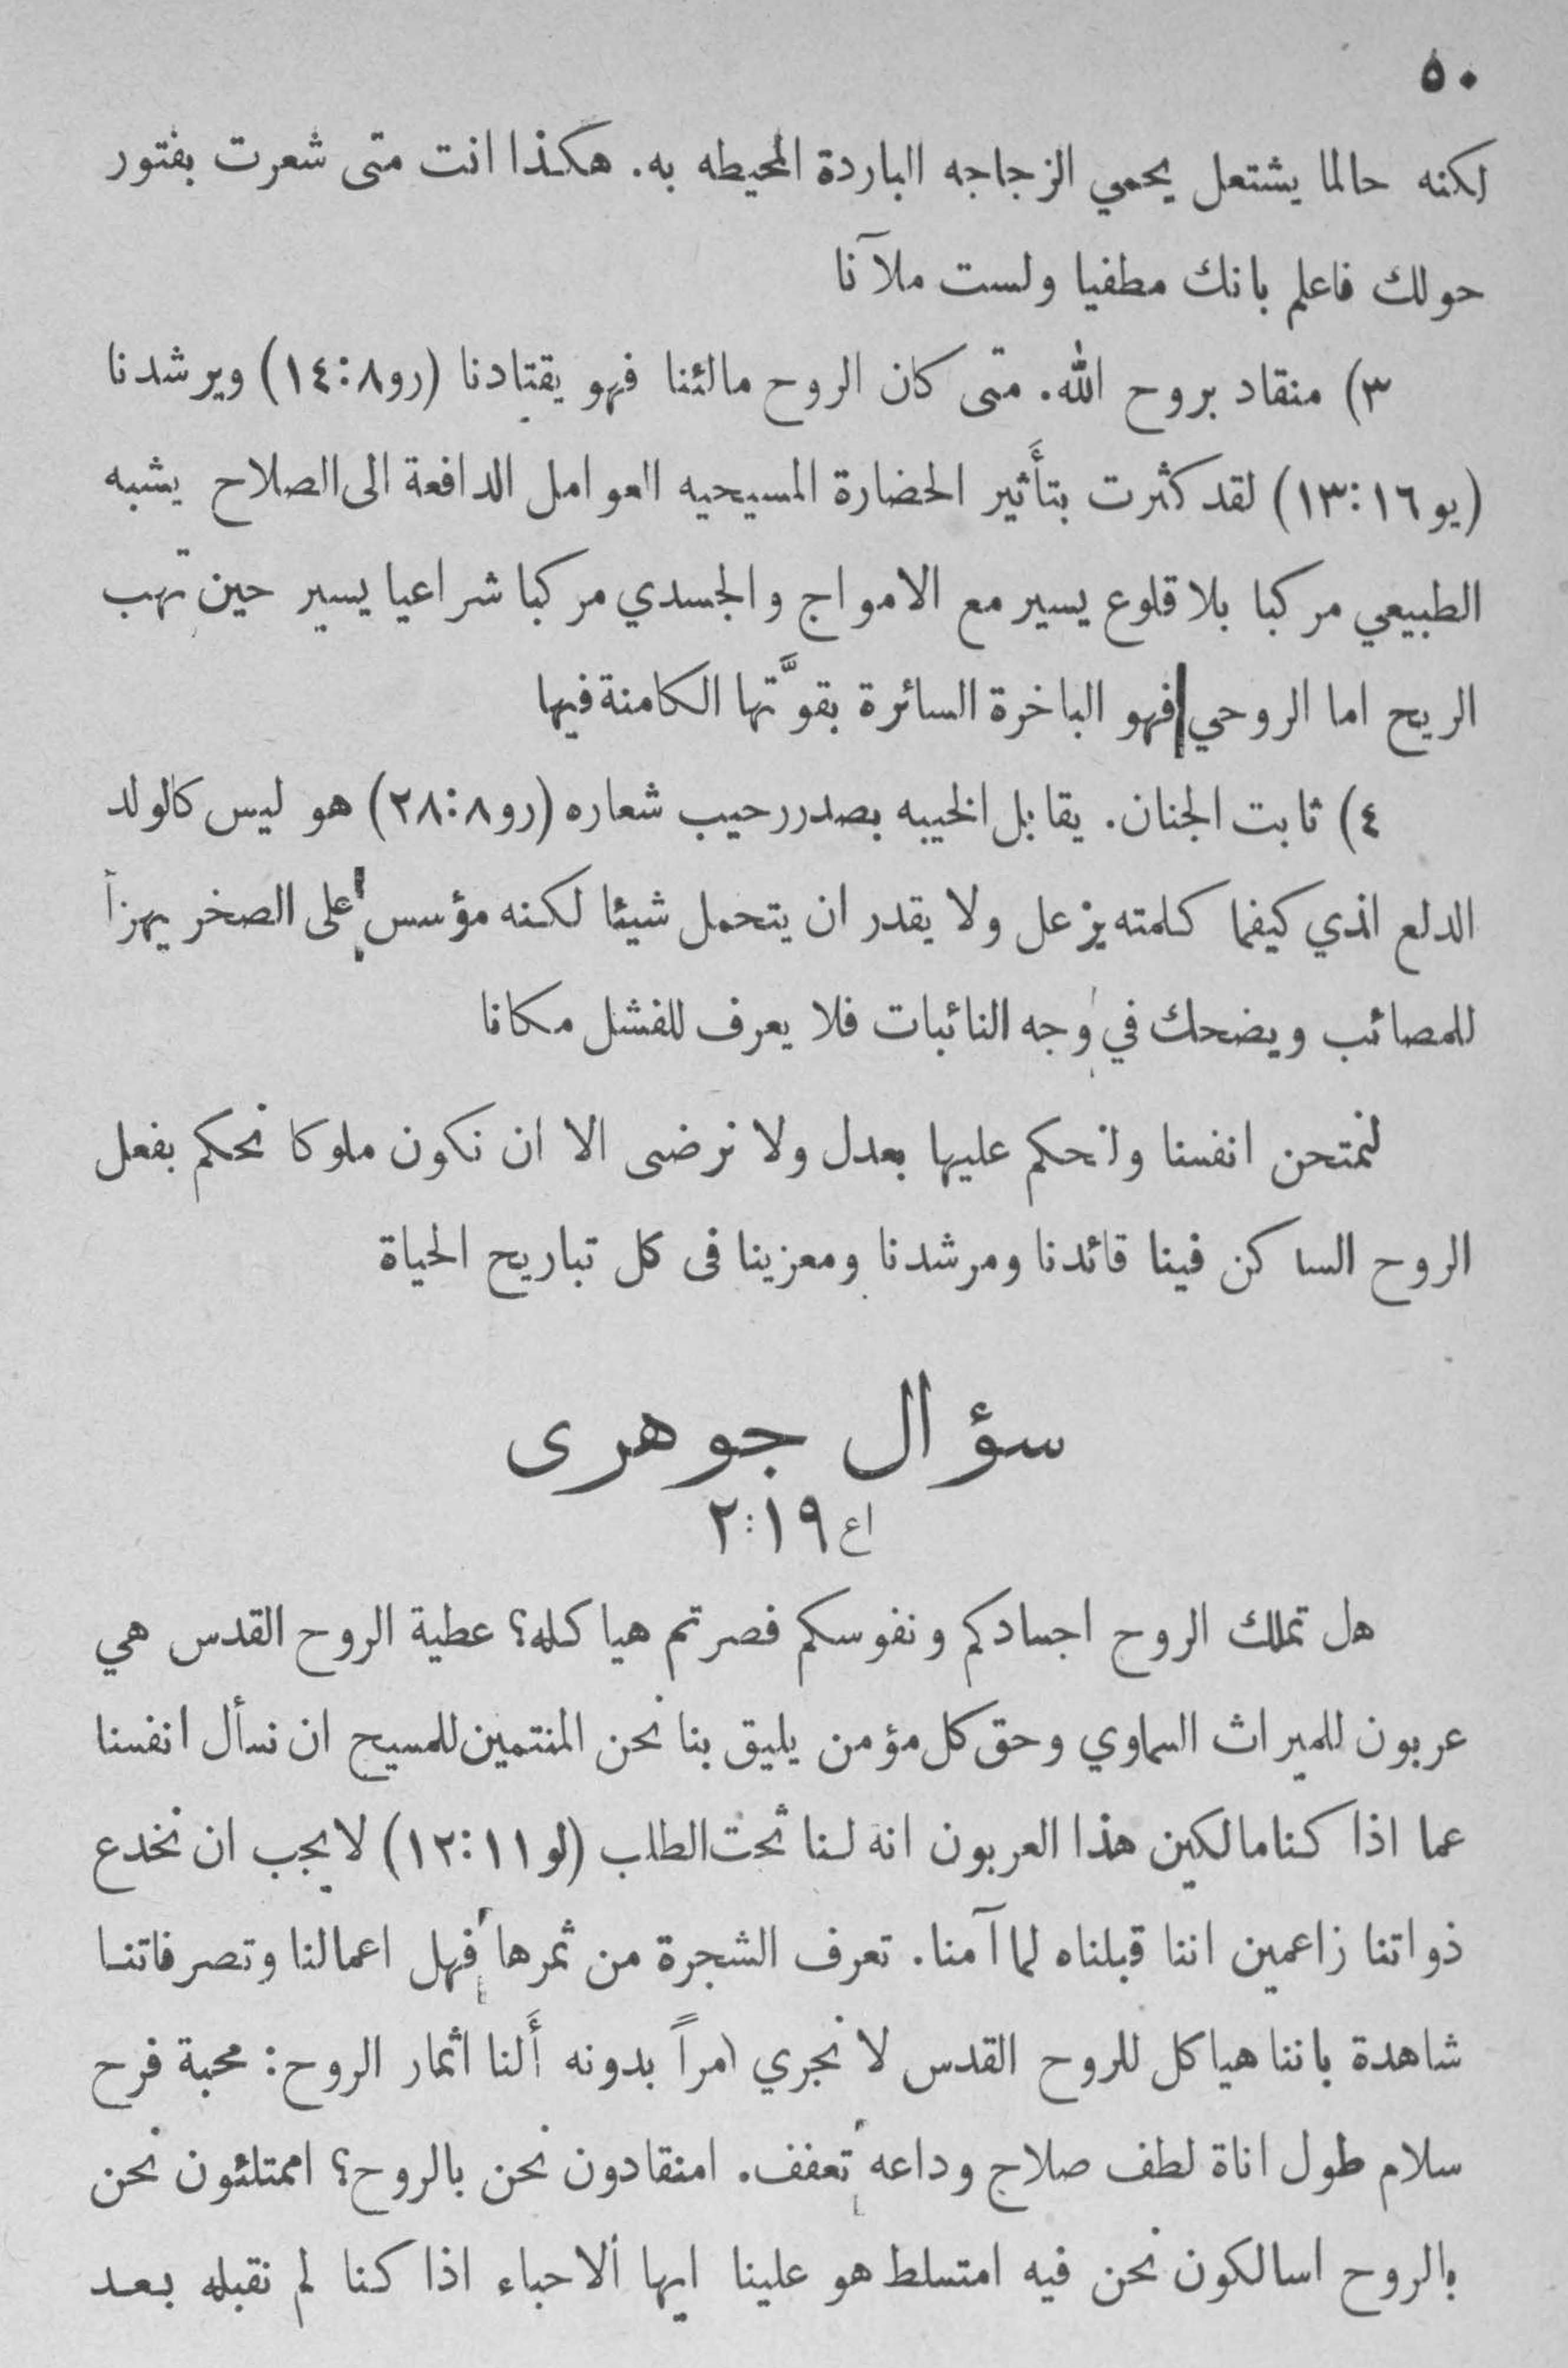 ٥٠
لكنه حالما يشتعل يحمي الزجاجه الباردة المحيطه به. هكذا انت متى شعرت بفتور
حولك فاعلم بانك مطفيا ولست ملآنا
٣) منقاد بروح الله. متى كان الروح مالئنا فهو يقتادنا (رو٨:١٤) ويرشدنا
(يو١٦:١٣) لقد كثرت بتأَثير الحضارة المسيحيه العوامل الدافعة الى الصلاح يشبه
الطبيعي مركبا بلا قلوع يسير مع الامواج والجسدي مركبا شراعيا يسير حين تهب
الريح اما الروحي فهو الباخرة السائرة بقوَّتها الكامنة فيها
٤) ثابت الجنان. يقابل الخيبه بصدر رحيب شعاره (رو٨:٢٨) هو ليس كالولد
الدلع الذي كيفما كلمته يزعل ولا يقدر ان يتحمل شيئا لكنه مؤسس على الصخر يهزأ
للمصائب ويضحك في وجه النائبات فلا يعرف للفشل مكانا
لنمتحن انفسنا ولنحكم عليها بعدل ولا نرضى الا ان نكون ملوكا نحكم بفعل
الروح الساكن فينا قائدنا ومرشدنا ومعزينا فى كل تباريح الحياة
سؤال جوهرى
اع ١٩:٢
هل تملك الروح اجسادكم ونفوسكم فصرتم هياكله؟ عطية الروح القدس هي
عربون للميراث السماوي وحق كل مؤمن يليق بنا نحن المنتمين للمسيح ان نسأل انفسنا
عما اذا كنا مالكين هذا العربون انه لنا تحت الطلب (لو١١:١٢) لا يجب ان نخدع
ذواتنا زاعمين اننا قبلناه لما آمنا. تعرف الشجرة من ثمرها فهل اعمالنا وتصرفاتنا
شاهدة باننا هياكل للروح القدس لا نجري امراً بدونه أَلنا اثمار الروح: محبة فرح
سلام طول اناة لطف صلاح وداعه تعفف. امنقادون نحن بالروح؟ اممتلئون نحن
بالروح اسالكون نحن فيه امتسلط هو علينا ايها الاحباء اذا كنا لم نقبله بعد